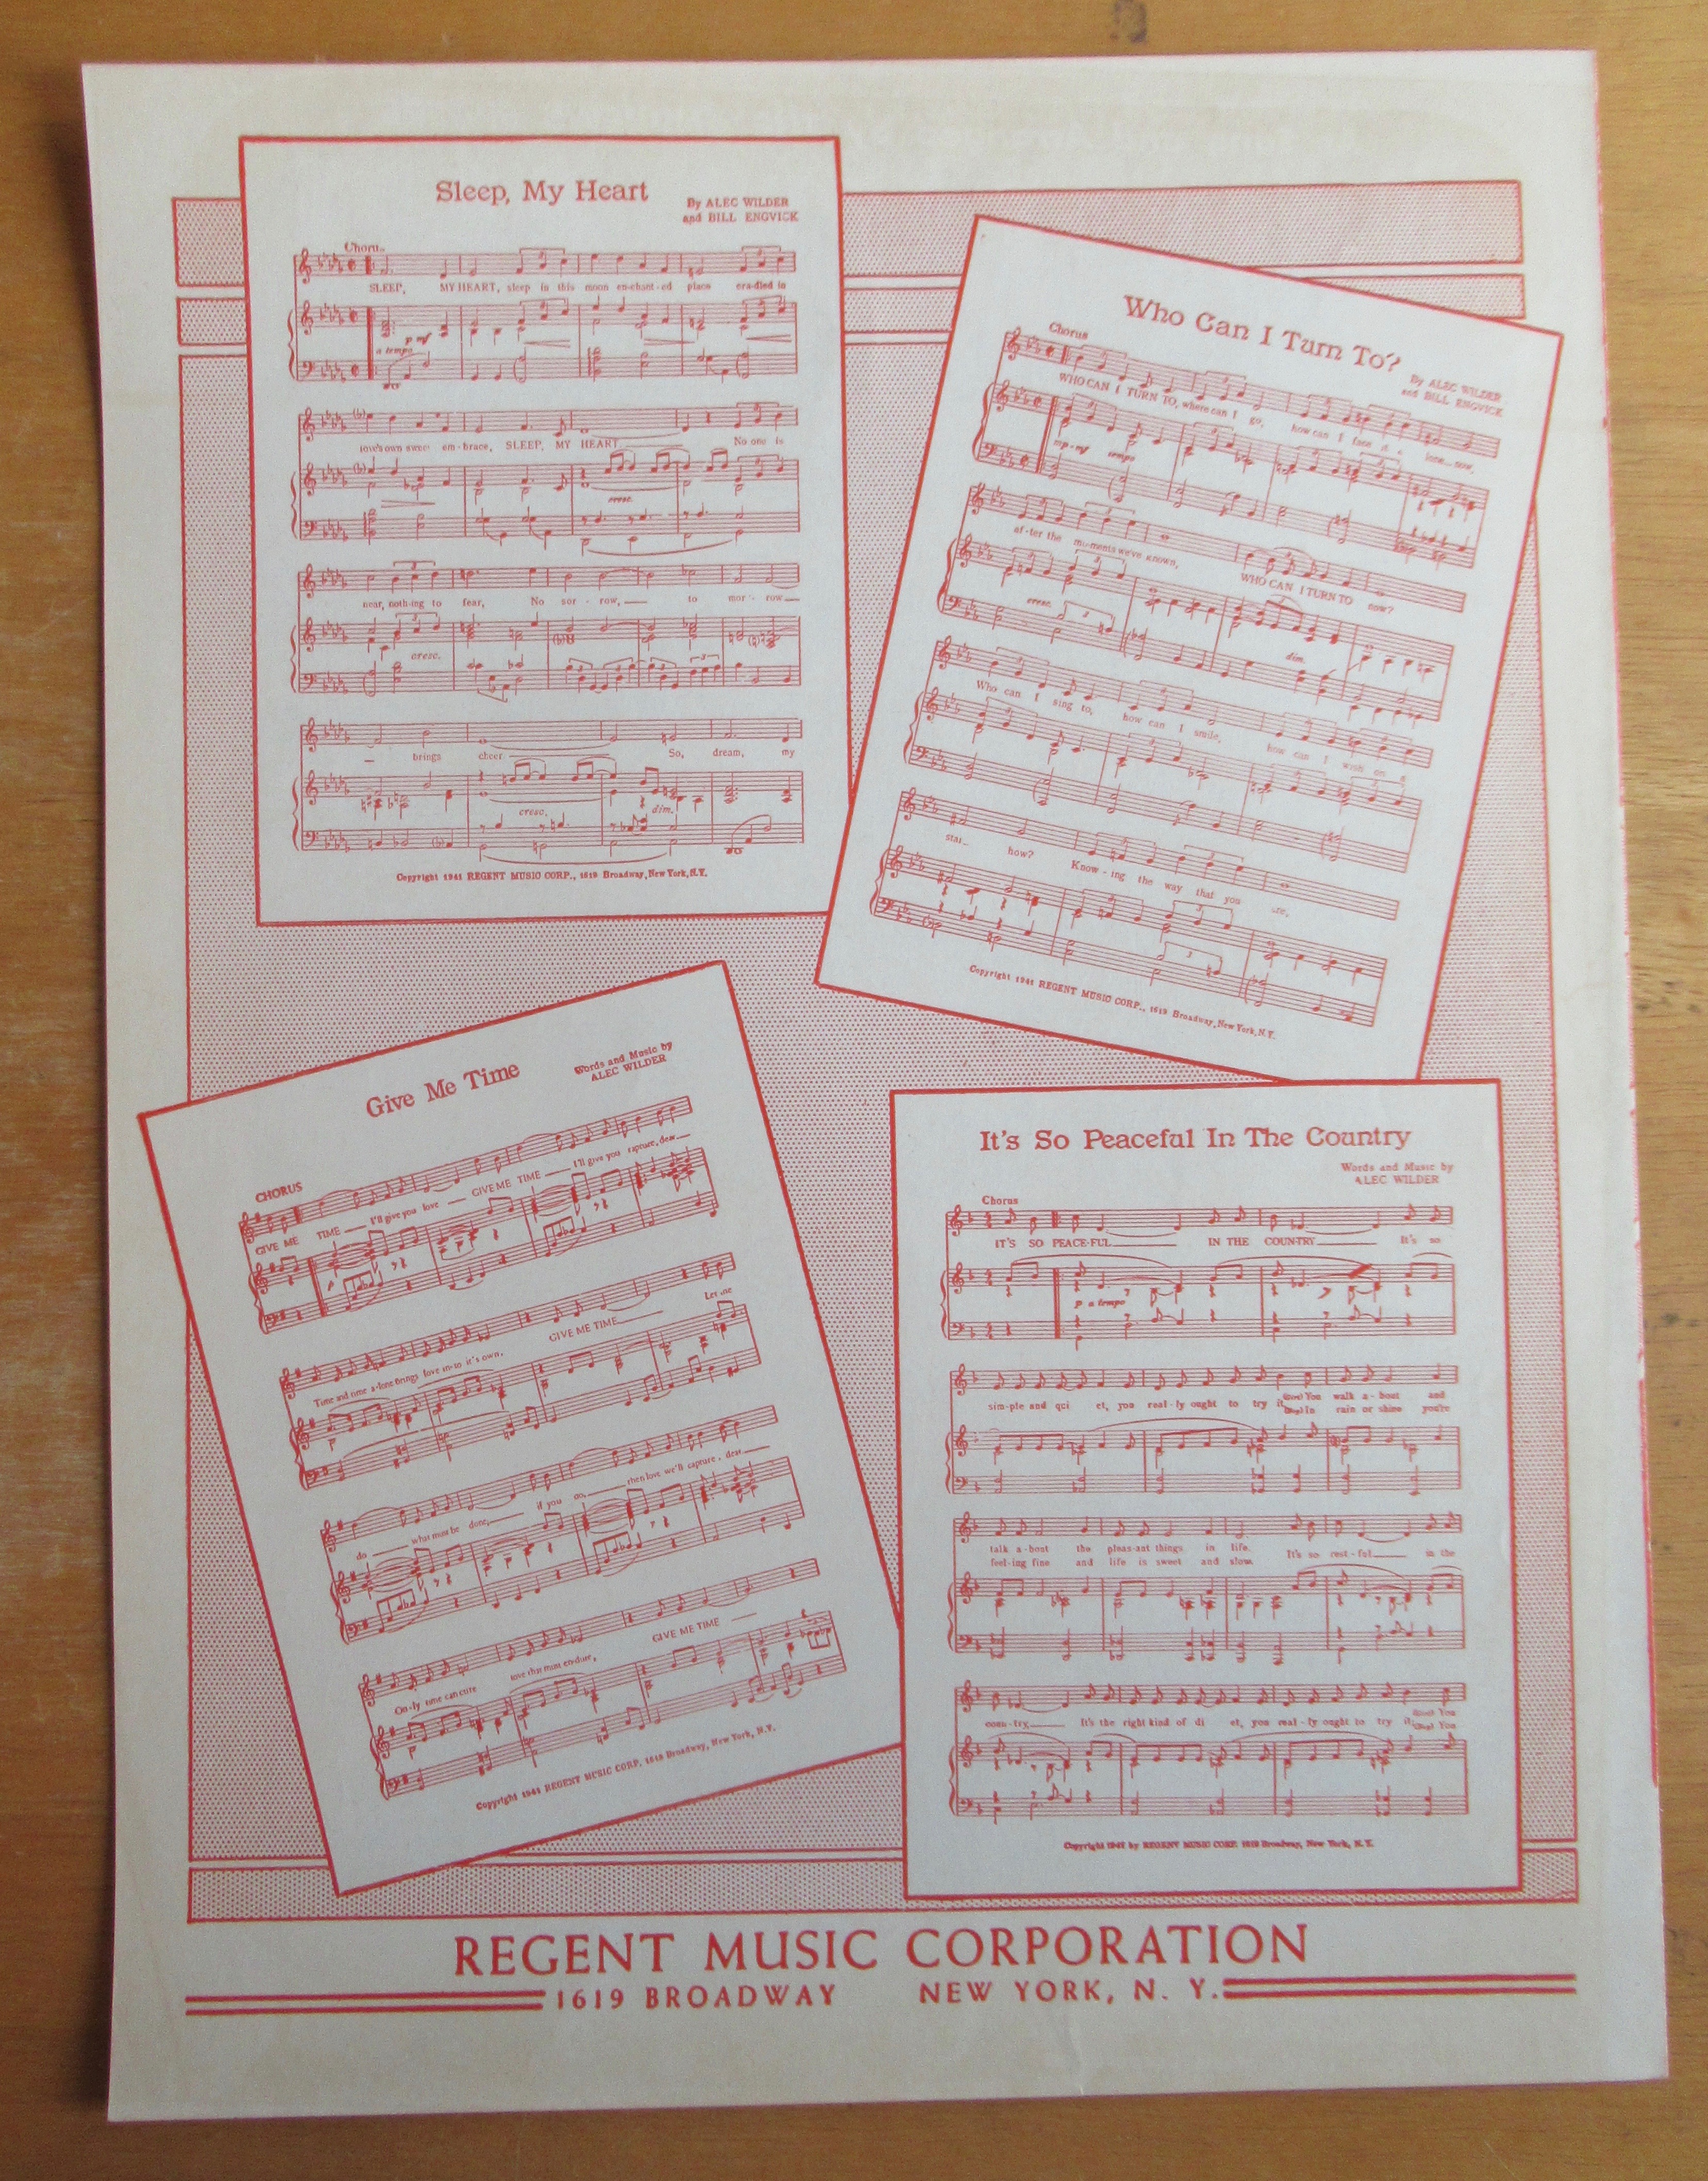 Sleep, My Heart
By ALEC WILDER
and BILL ENGVICK
Chorus
SLEEP, MY HEART, sleep in this moon en-chant-ed place cra-dled in
p mf
a tempo
love's own sweet em-brace, SLEEP, MY HEART No one is
cresc.
near, noth-ing to fear, No sor - row, to mor - row
cresc.
brings cheer So, dream, my
cresc. dim.
Copyright 1941 REGENT MUSIC CORP., 1619 Broadway, New York, N.Y.
Who Can I Turn To?
By ALEC WILDER
and BILL ENGVICK
Chorus
WHO CAN I TURN TO, where can I go, how can I face it a lone now,
mp-mf tempo
af-ter the mo-ments we've known, WHO CAN I TURN TO now?
cresc. 3 dim.
Who can I sing to, how can I smile, how can I wish on a
star how? Know - ing the way that you are,
Copyright 1941 REGENT MUSIC CORP., 1619 Broadway, New York, N.Y.
Give Me Time
Words and Music by
ALEC WILDER
CHORUS
GIVE ME TIME I'll give you love GIVE ME TIME I'll give you rapture, dear
p
Time and time a-lone brings love in-to it's own, GIVE ME TIME Let me
do what must be done, if you do, then love we'll capture, dear
On-ly time can cure love that must en-dure, GIVE ME TIME
Copyright 1941 REGENT MUSIC CORP. 1619 Broadway, New York, N.Y.
It's So Peaceful In The Country
Words and Music by
ALEC WILDER
Chorus
IT'S SO PEACE-FUL IN THE COUN-TRY It's so
p a tempo
sim-ple and qui et, you real-ly ought to try it You walk a-bout and
In rain or shine you're
talk a-bout the pleas-ant things in life. It's so rest-ful in the
feel-ing fine and life is sweet and slow.
coun-try It's the right kind of di et, you real-ly ought to try it You
You
Copyright 1941 by REGENT MUSIC CORP. 1619 Broadway, New York, N.Y.
REGENT MUSIC CORPORATION
1619 BROADWAY NEW YORK, N. Y.